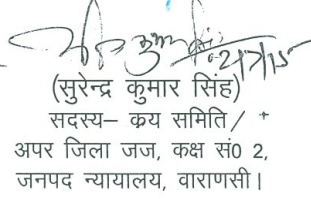 21/7/15
(सुरेन्द्र कुमार सिंह)
सदस्य– क्रय समिति /
अपर जिला जज, कक्ष सं0 2,
जनपद न्यायालय, वाराणसी।